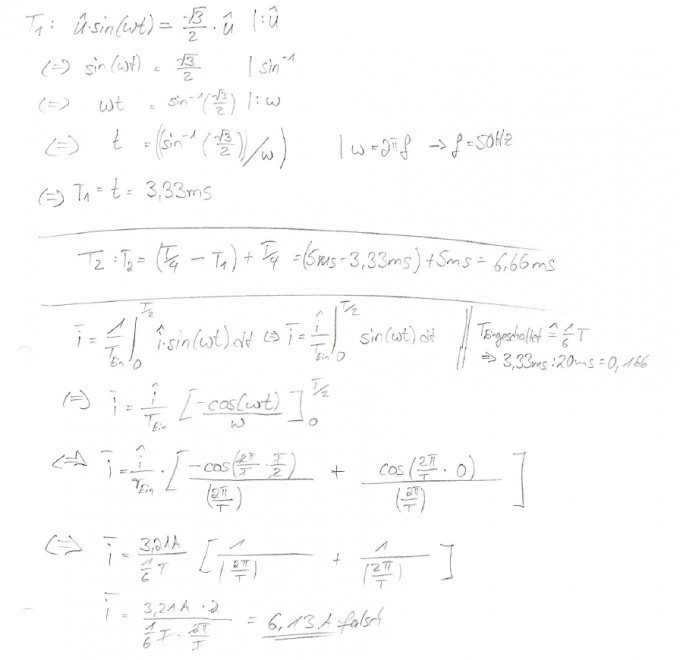 T₁: û·sin(ωt) = √3/2 · û |:û
(=) sin(ωt) = √3/2 | sin⁻¹
(=) ωt = sin⁻¹(√3/2) |:ω
(=) t = ((sin⁻¹(√3/2))/ω) | ω=2πf → f=50Hz
(=) T₁ = t = 3,33ms
T₂: T₂ = (T/4 - T₁) + T/4 = (5ms-3,33ms)+5ms = 6,66ms
ī = 1/T_Ein ∫₀^(T/2) î·sin(ωt) dt (=) ī = î/T_Ein ∫₀^(T/2) sin(ωt) dt || T_Eingeschaltet ≙ 1/6 T
⇒ 3,33ms:20ms=0,166
(=) ī = î/T_Ein [-cos(ωt)/ω]₀^(T/2)
(=) ī = î/T_Ein · [-cos(2π/T · T/2)/(2π/T) + cos(2π/T · 0)/(2π/T)]
(=) ī = 3,21A/(1/6 T) [1/(2π/T) + 1/(2π/T)]
ī = 3,21A·2/(1/6 T · 2π/T) = 6,13A falsch